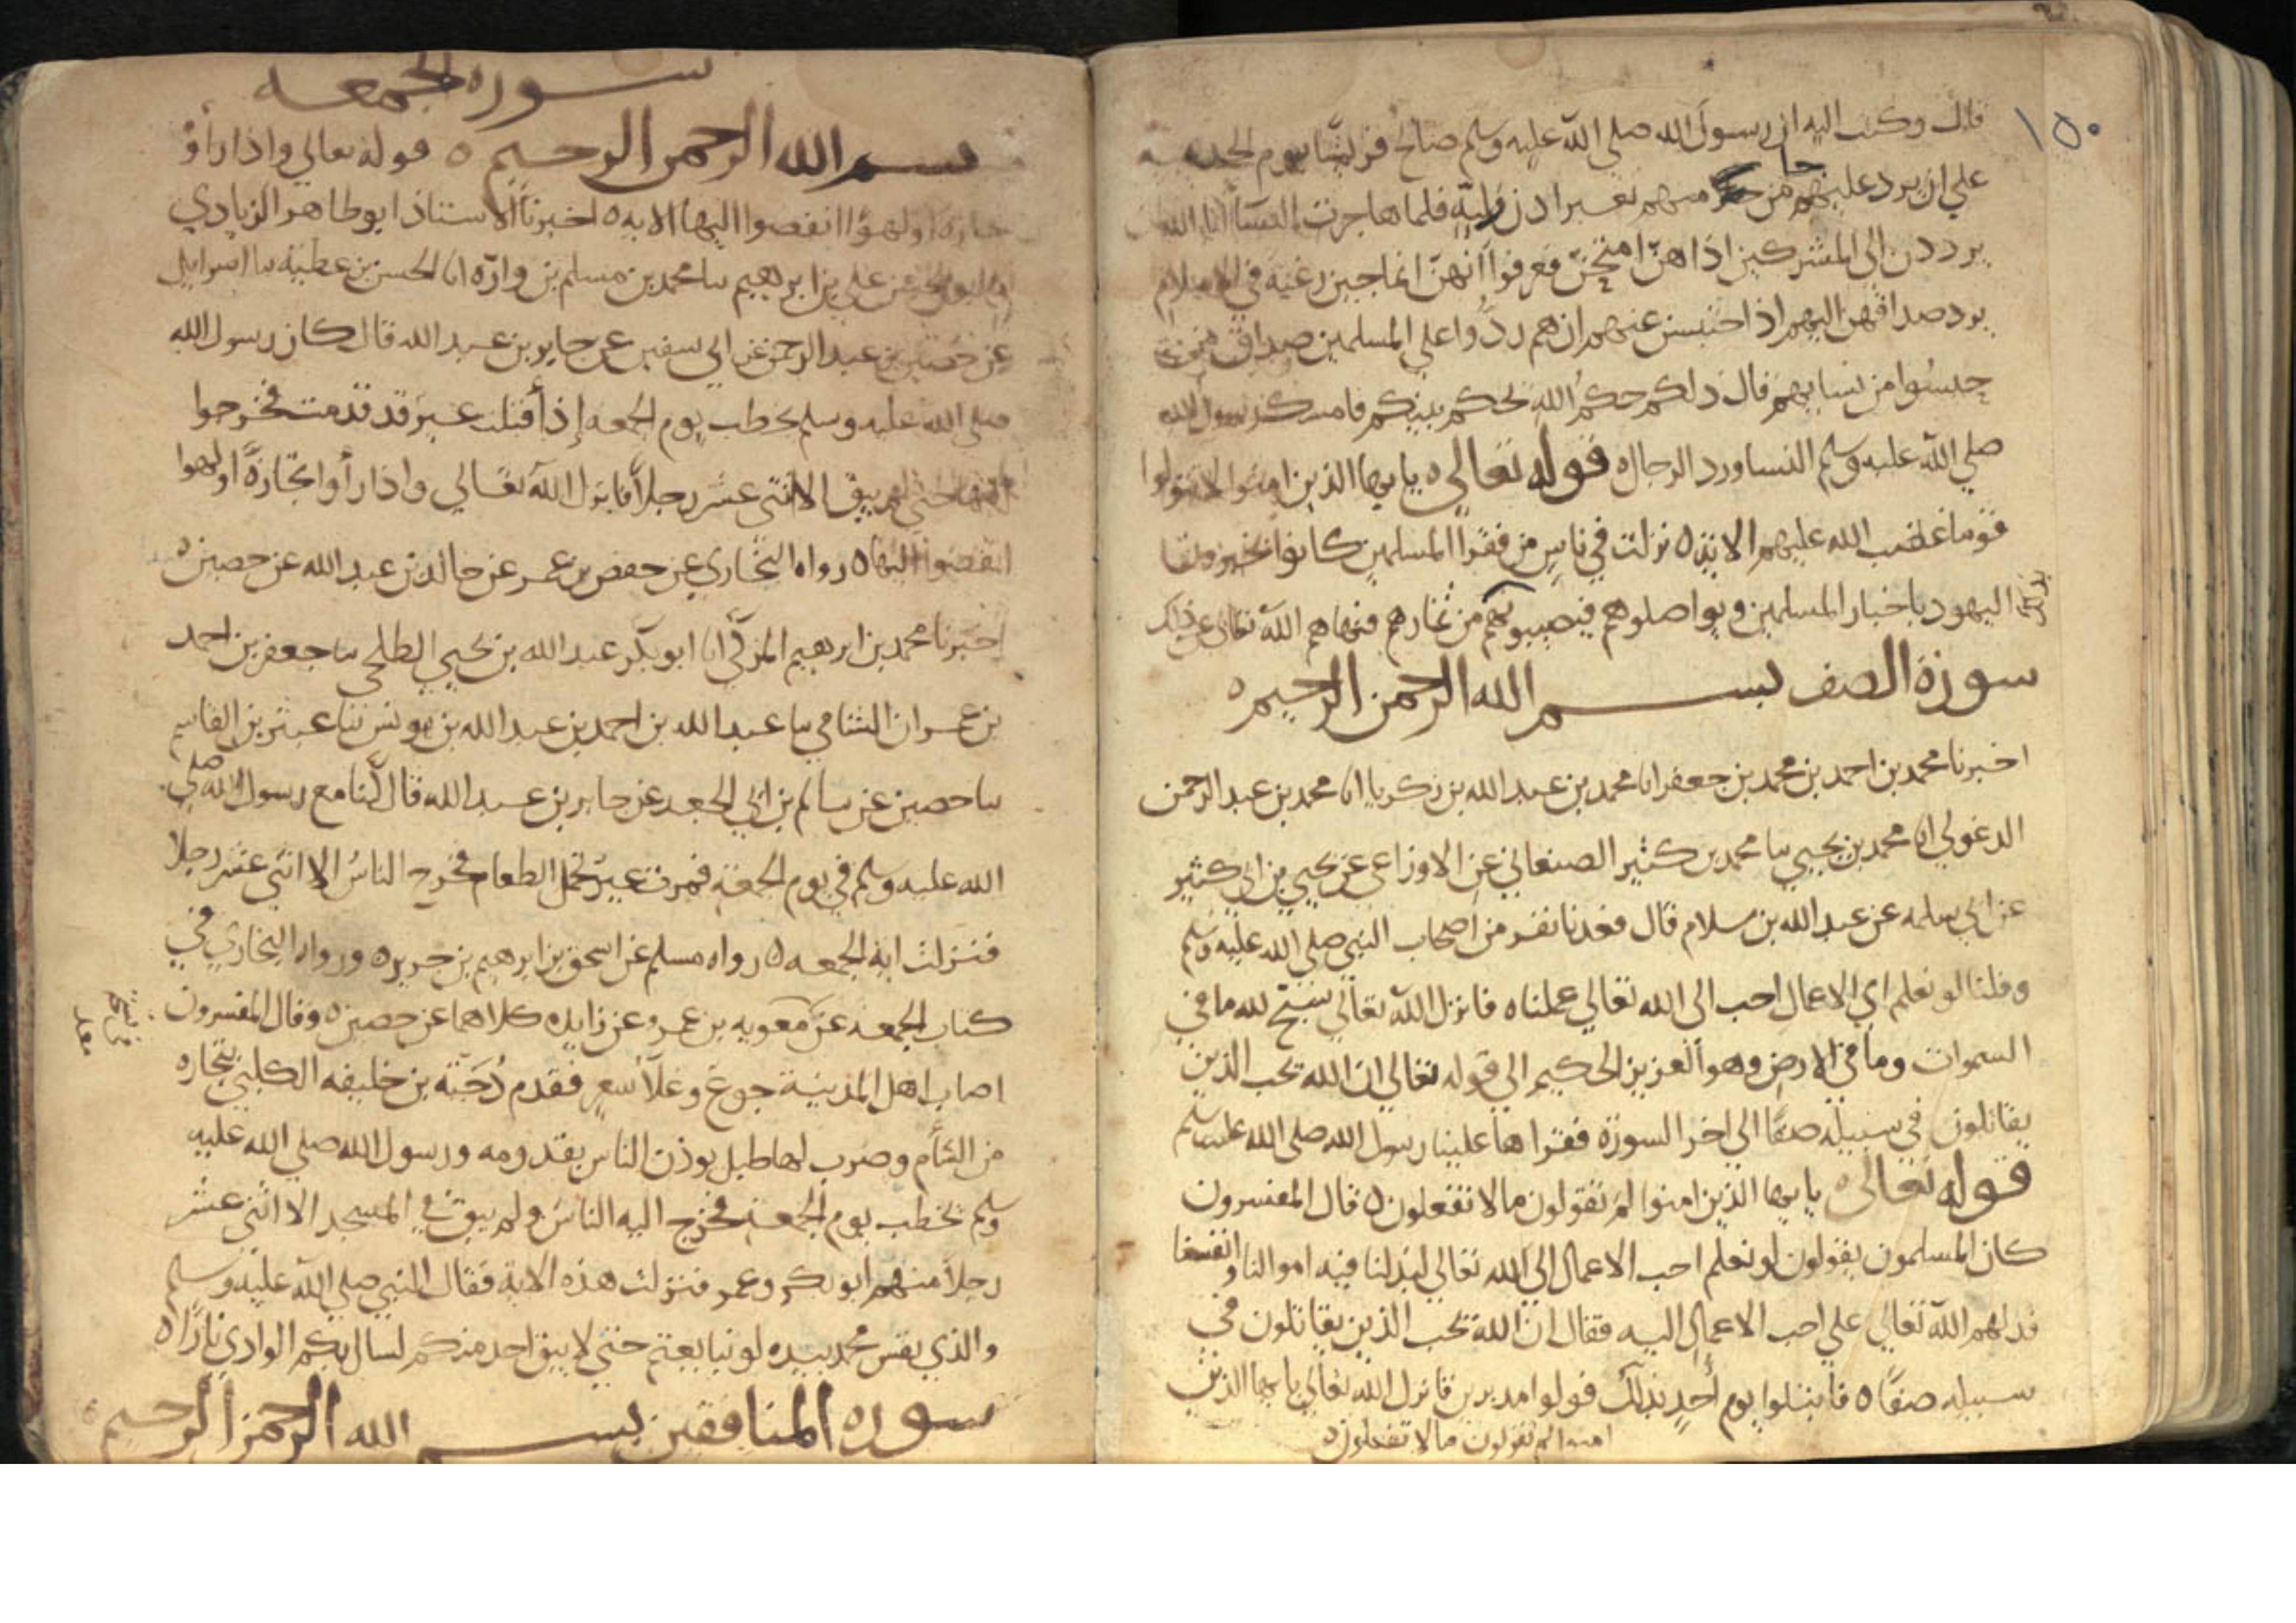 ١٥٠
قال وكتب اليه ان رسول الله صلى الله عليه وسلم صالح قريشا يوم الحديبية
على ان يرد عليهم من جا منهم بغير اذن وليه فلما هاجرت النسآ ابا الله ان
يرددن الى المشركين اذا هن امتحن فعرفوا انهن انما جين رغبة في الاسلام
برد صداقهن اليهم اذا احتبسن عنهم ان هم ردوا على المسلمين صداق من
حبسوا من نسايهم قال ذلكم حكم الله يحكم بينكم فامسك رسول الله
صلى الله عليه وسلم النسا ورد الرجال ٥ قوله تعالى ٥ يا يها الذين امنوا لا تتولوا
قوما غضب الله عليهم الاية ٥ نزلت في ناس من فقرا المسلمين كانوا يخبرون
اليهود باخبار المسلمين ويواصلوهم فيصيبون من ثمارهم فنهاهم الله تعالى عن ذلك
سورة الصف بسم الله الرحمن الرحيم ٥
اخبرنا محمد بن احمد بن محمد بن جعفر انا محمد بن عبد الله بن زكريا انا محمد بن عبد الرحمن
الدغولي انا محمد بن يحيي نا محمد بن كثير الصنعاني عن الاوزاعي عن يحيي بن ابي كثير
عن ابي سلمه عن عبد الله بن سلام قال قعدنا نفر من اصحاب النبي صلى الله عليه وسلم
وقلنا لو نعلم اي الاعمال احب الى الله تعالى عملناه فانزل الله تعالى سبح لله ما في
السموات وما في الارض وهو العزيز الحكيم الى قوله تعالى ان الله يحب الذين
يقاتلون في سبيله صفا الى اخر السورة فقراها علينا رسول الله صلى الله عليه وسلم
قوله تعالى ٥ يا يها الذين امنوا لم تقولون ما لا تفعلون ٥ قال المفسرون
كان المسلمون يقولون لو نعلم احب الاعمال الى الله تعالى لبذلنا فيه اموالنا وانفسنا
فدلهم الله تعالى على احب الاعمال اليه فقال ان الله يحب الذين يقاتلون في
سبيله صفا ٥ فابتلوا يوم أحد بذلك فولوا مدبرين فانزل الله تعالى يا يها الذين
امنوا لم تقولون ما لا تفعلون ٥
سوره الجمعه
بسم الله الرحمن الرحيم ٥ قوله تعالى واذا رأوْ
تجارة او لهوًا انفضوا اليها الايه ٥ اخبرنا الاستاذ ابو طاهر الزيادي
علي بن ابرهيم نا محمد بن مسلم بن وارّه انا الحسن بن عطية نا اسرايل
عن حصين بن عبد الرحمن عن ابي سفين عن جابر بن عبد الله قال كان رسول الله
صلى الله عليه وسلم يخطب يوم الجمعه إذ أقبلت عير قد قدمت فخرجوا
اليها حتى لم يبق الا اثنى عشر رجلاً فانزل الله تعالى واذا رأوا تجارة او لهوا
انفضوا اليها ٥ رواه البخاري عن حفص بن عمر عن خالد بن عبد الله عن حصين ٥
اخبرنا محمد بن ابرهيم المزكي انا ابو بكر عبد الله بن يحيي الطلحي نا جعفر بن احمد
بن عمران الشامي نا عبد الله بن احمد بن عبد الله بن يونس نا عبثر بن القاسم
نا حصين عن سالم بن ابي الجعد عن جابر بن عبد الله قال كنا مع رسول الله صلى
الله عليه وسلم في يوم الجمعة فمرت عير تحمل الطعام فخرج الناس الا اثنى عشر رجلا
فنزلت اية الجمعه ٥ رواه مسلم عن اسحق بن ابرهيم بن جرير ٥ ورواه البخاري في
كتاب الجمعه عن معويه بن عمرو عن زايده كلاهما عن حصين ٥ وقال المفسرون
اصاب اهل المدينة جوع وغلآ سعر فقدم دحية بن خليفه الكلبي بتجاره
من الشام وضرب لها طبل يوذن الناس بقدومه ورسول الله صلى الله عليه
وسلم يخطب يوم الجمعة فخرج اليه الناس ولم يبق في المسجد الا اثنى عشر
رجلاً منهم ابو بكر وعمر فنزلت هذه الاية فقال النبي صلى الله عليه وسلم
والذي نفس محمد بيده لو تتابعتم حتى لا يبق احد منكم لسال بكم الوادي نارًا ٥
سوره المنافقين بسم الله الرحمن الرحيم